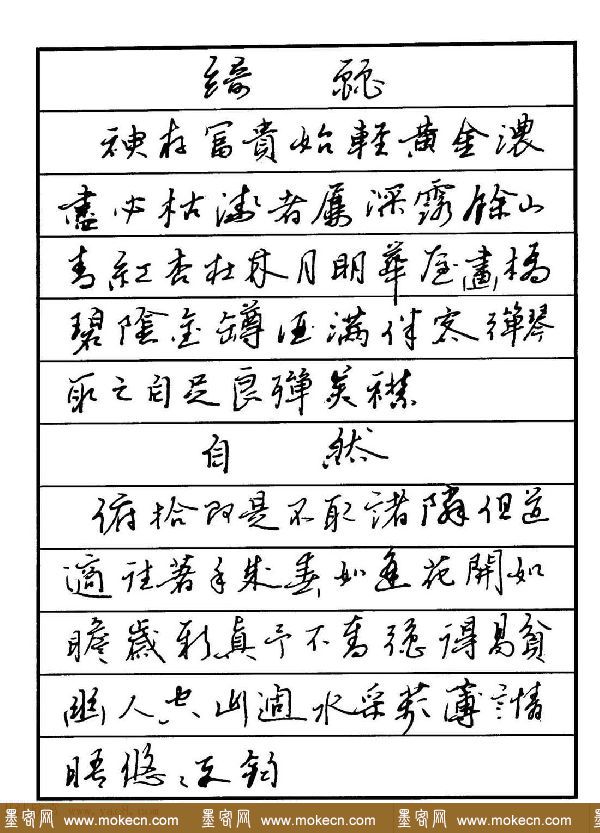 綺麗
神存富貴始輕黃金濃
盡必枯淺者屢深露餘山
青紅杏在林月明華屋畫橋
碧陰金罇酒滿伴客彈琴
取之自足良殫美襟
自然
俯拾即是不取諸隣俱道
適往著手成春如逢花開如
瞻歲新真予不奪強得易貧
幽人空山過水采蘋薄言情
晤悠〻天鈞
墨客网 www.mokecn.com 墨客网 www.mokecn.com 墨客网 www.mokecn.com